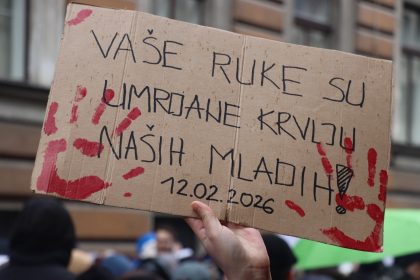 VAŠE RUKE SU
UMRLJANE KRVLJU
NAŠIH MLADIH!
12.02.2026